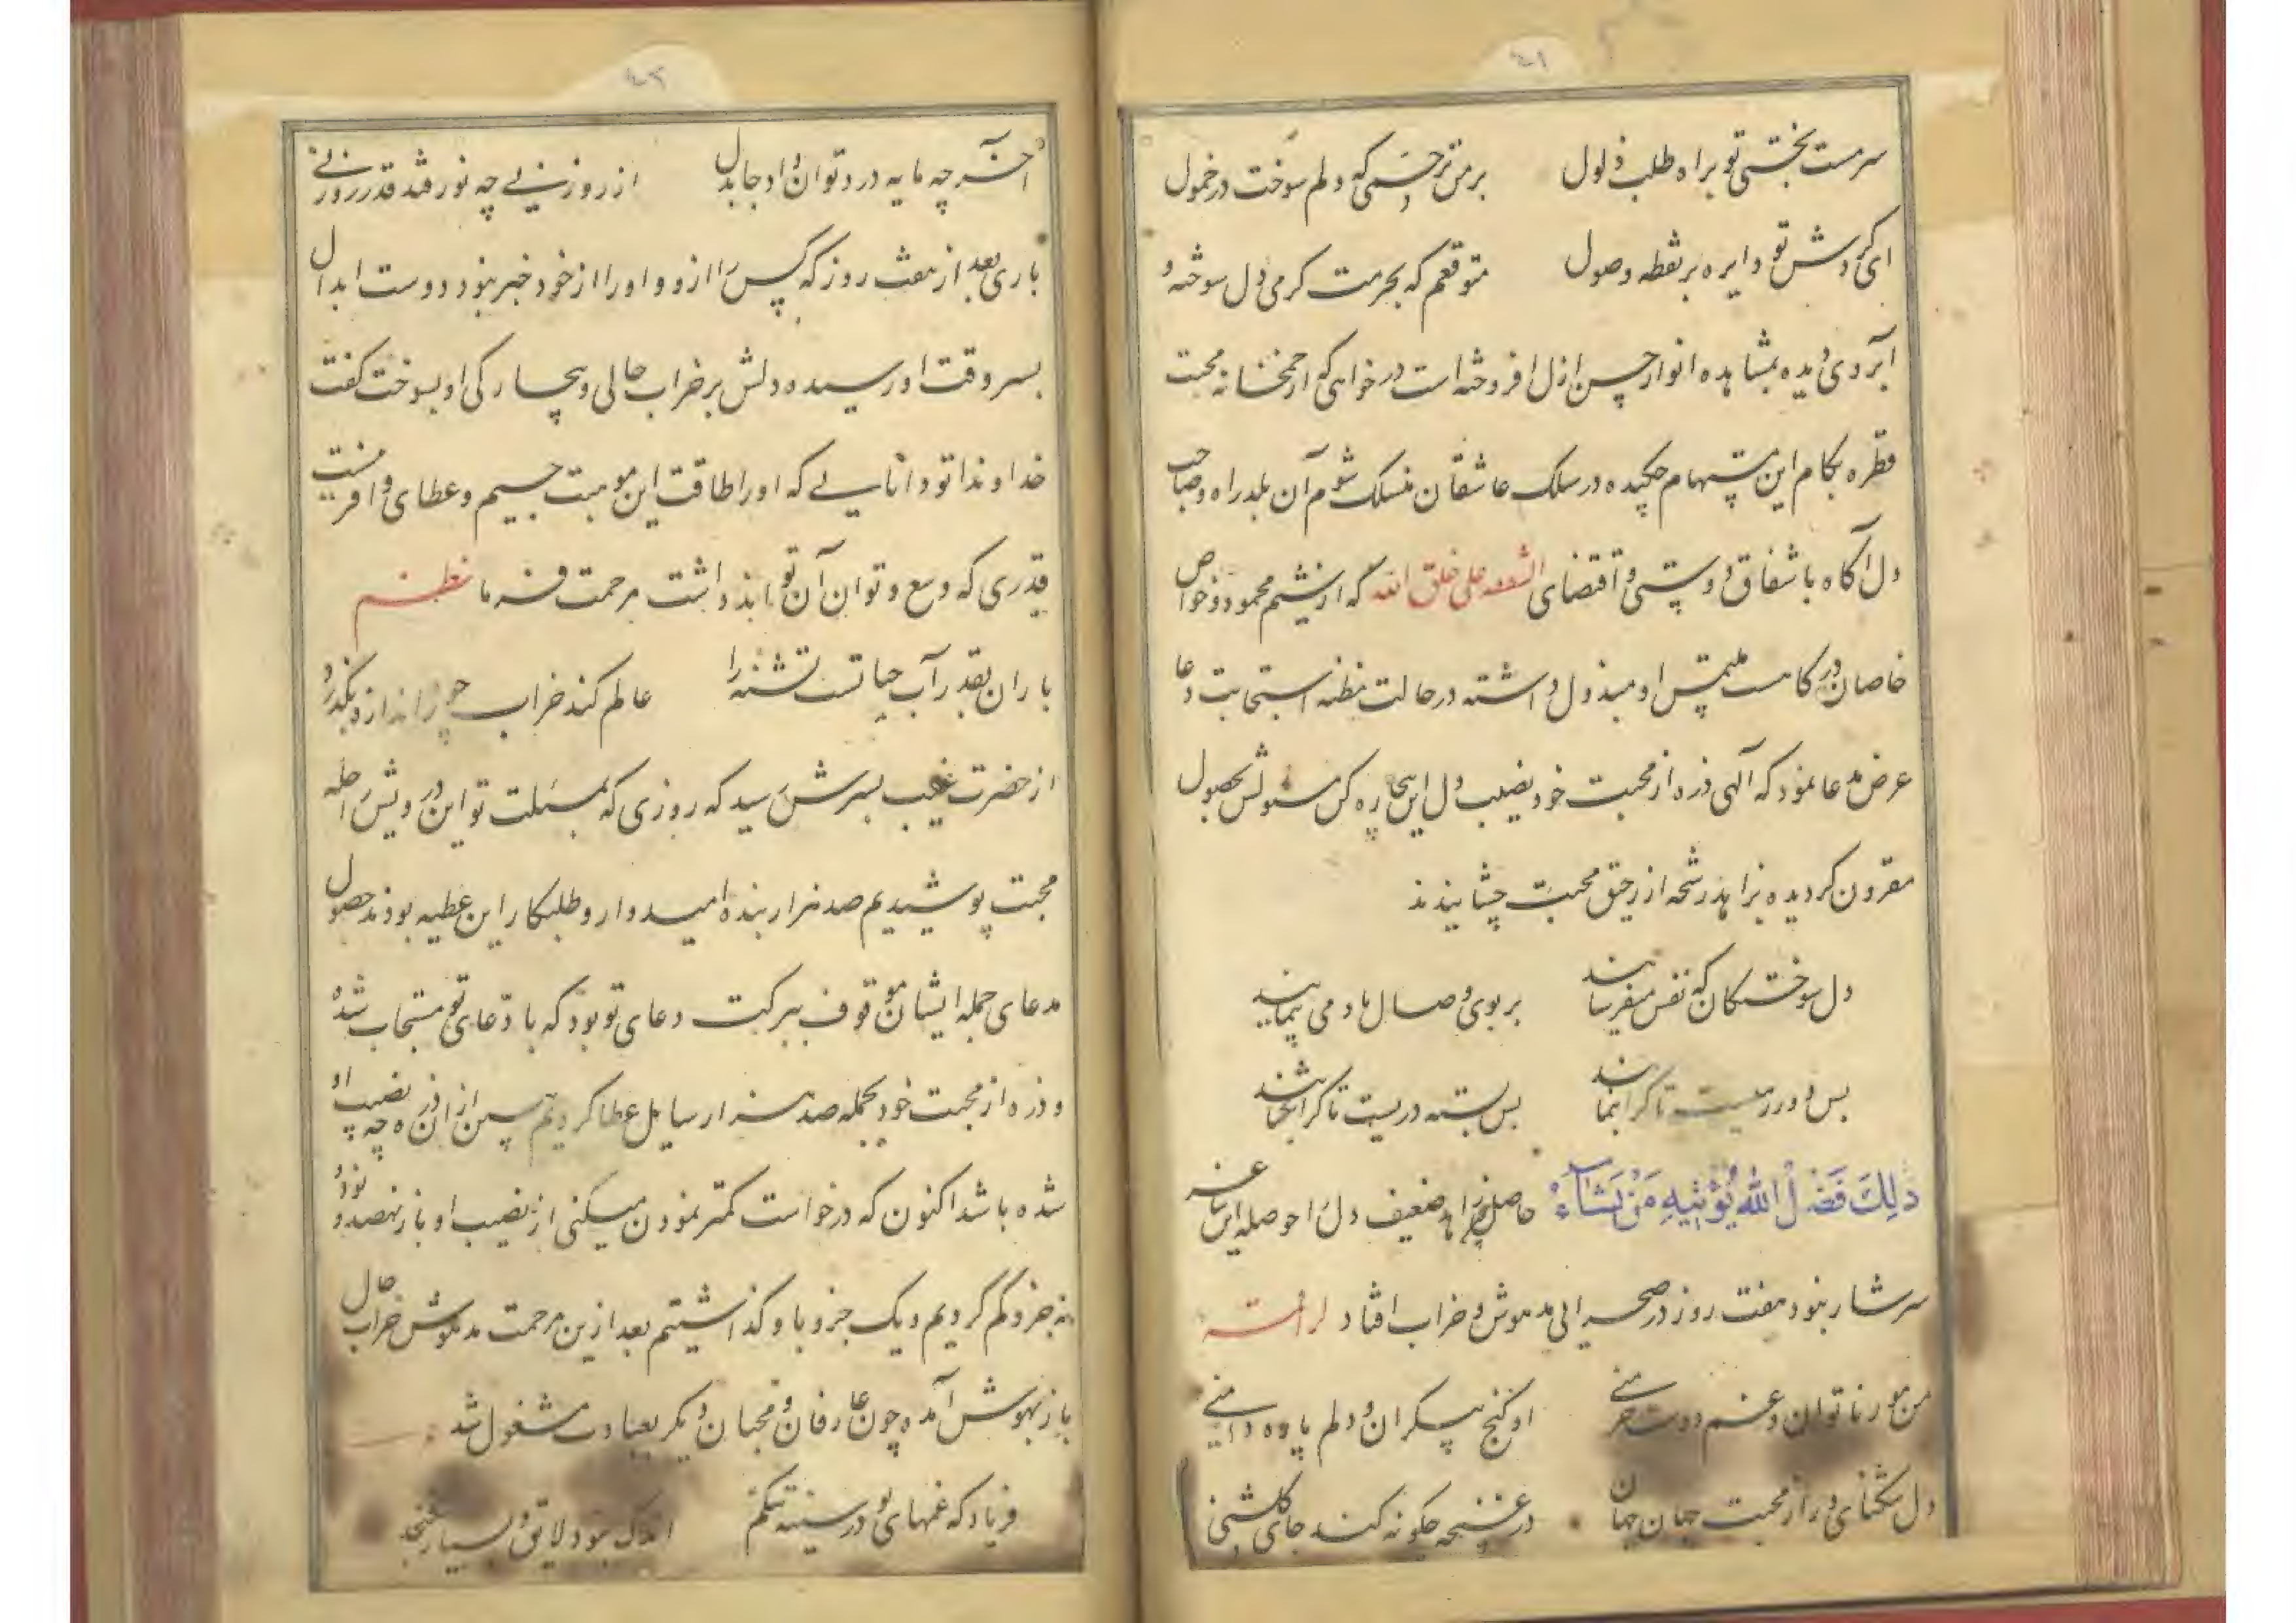 ۴۱
سرمست بختی تو براه طلب ذلول برمن ترحمی که دلم سوخت در خمول
ای گردش تو دایره بر نقطه وصول متوقعم که بحرمت گرمی دل سوخته و
آبروی دیده بمشاهده انوار حسن ازل افروخته است درخواهی که از خمخانه محبت
قطره بکام این مستهام چکیده در سلک عاشقان منسلک شوم آن بلد راه و صاحب
دل آگاه باشفاق دوستی و اقتضای الشفقه علی خلق الله که از شیم محمود و خواص
خاصان درکاست ملتمس او مبذول داشته در حالت مظنه استجابت دعا
عرض مدعا نمود که آلهی ذره از محبت خود نصیب دل این بیچاره کن مسئولش بحصول
مقرون گردیده زاهد رشحه از رحیق محبت چشانیدند
دل سوختگان که نفس میفرسایند بر بوی وصال باد می پیمایند
بس بسته دریست تا کرا بگشایند
ذٰلِكَ فَضْلُ اللهِ يُؤْتِيهِ مَنْ يَشَآءُ حاصل زاهد ضعیف دل را حوصله این ساغر
سرشار نبود هفت روز در صحرایی مدهوش و خراب افتاد لراقمه
من مور ناتوان و غم دوست خرمنی او گنج بیکران و دلم پاره دامنی
دل تنگنای و راز محبت جهان جهان در غنچه چگونه کند جای گلشنی
۴۲
آخر چه مایه درد توان داد جا بدل از روزنی چه نور فتد قدر روزنی
باری بعد از هفت روز که کس را ازو و او را از خود خبر نبود دوست ابدال
بسر وقت او رسیده دلش بر خراب حالی و بیچارگی او بسوخت گفت
خداوندا تو دانایی که او را طاقت این موهبت جسیم و عطای وافر نیست
قدری که وسع و توان آن تواند داشت مرحمت فرما نظم
باران بقدر آب حیاتست تشنه را عالم کند خراب چو از اندازه بگذرد
از حضرت غیب بسرش رسید که روزی که بمسئلت تو این درویش را حله
محبت پوشیدیم صد هزار بنده امیدوار و طلبکار این عطیه بودند حصول
مدعای جمله ایشان موقوف ببرکت دعای تو بود که با دعای تو مستجاب شد
و ذره از محبت خود بجمله صد هزار سایل عطا کردیم پس از آن ذره چه نصیب او
شده باشد اکنون که درخواست کمتر نمودن میکنی از نصیب او باز نهصد و نود و
نه جزو کم کردیم و یک جزو باو گذاشتیم بعد ازین مرحمت مدهوش خراب حال
باز بهوش آمده چون عارفان و محبان دیگر بعبادت مشغول شد
فریاد که غمهای تو در سینه تنگم اندک نبود لایق و بسیار نگنجد